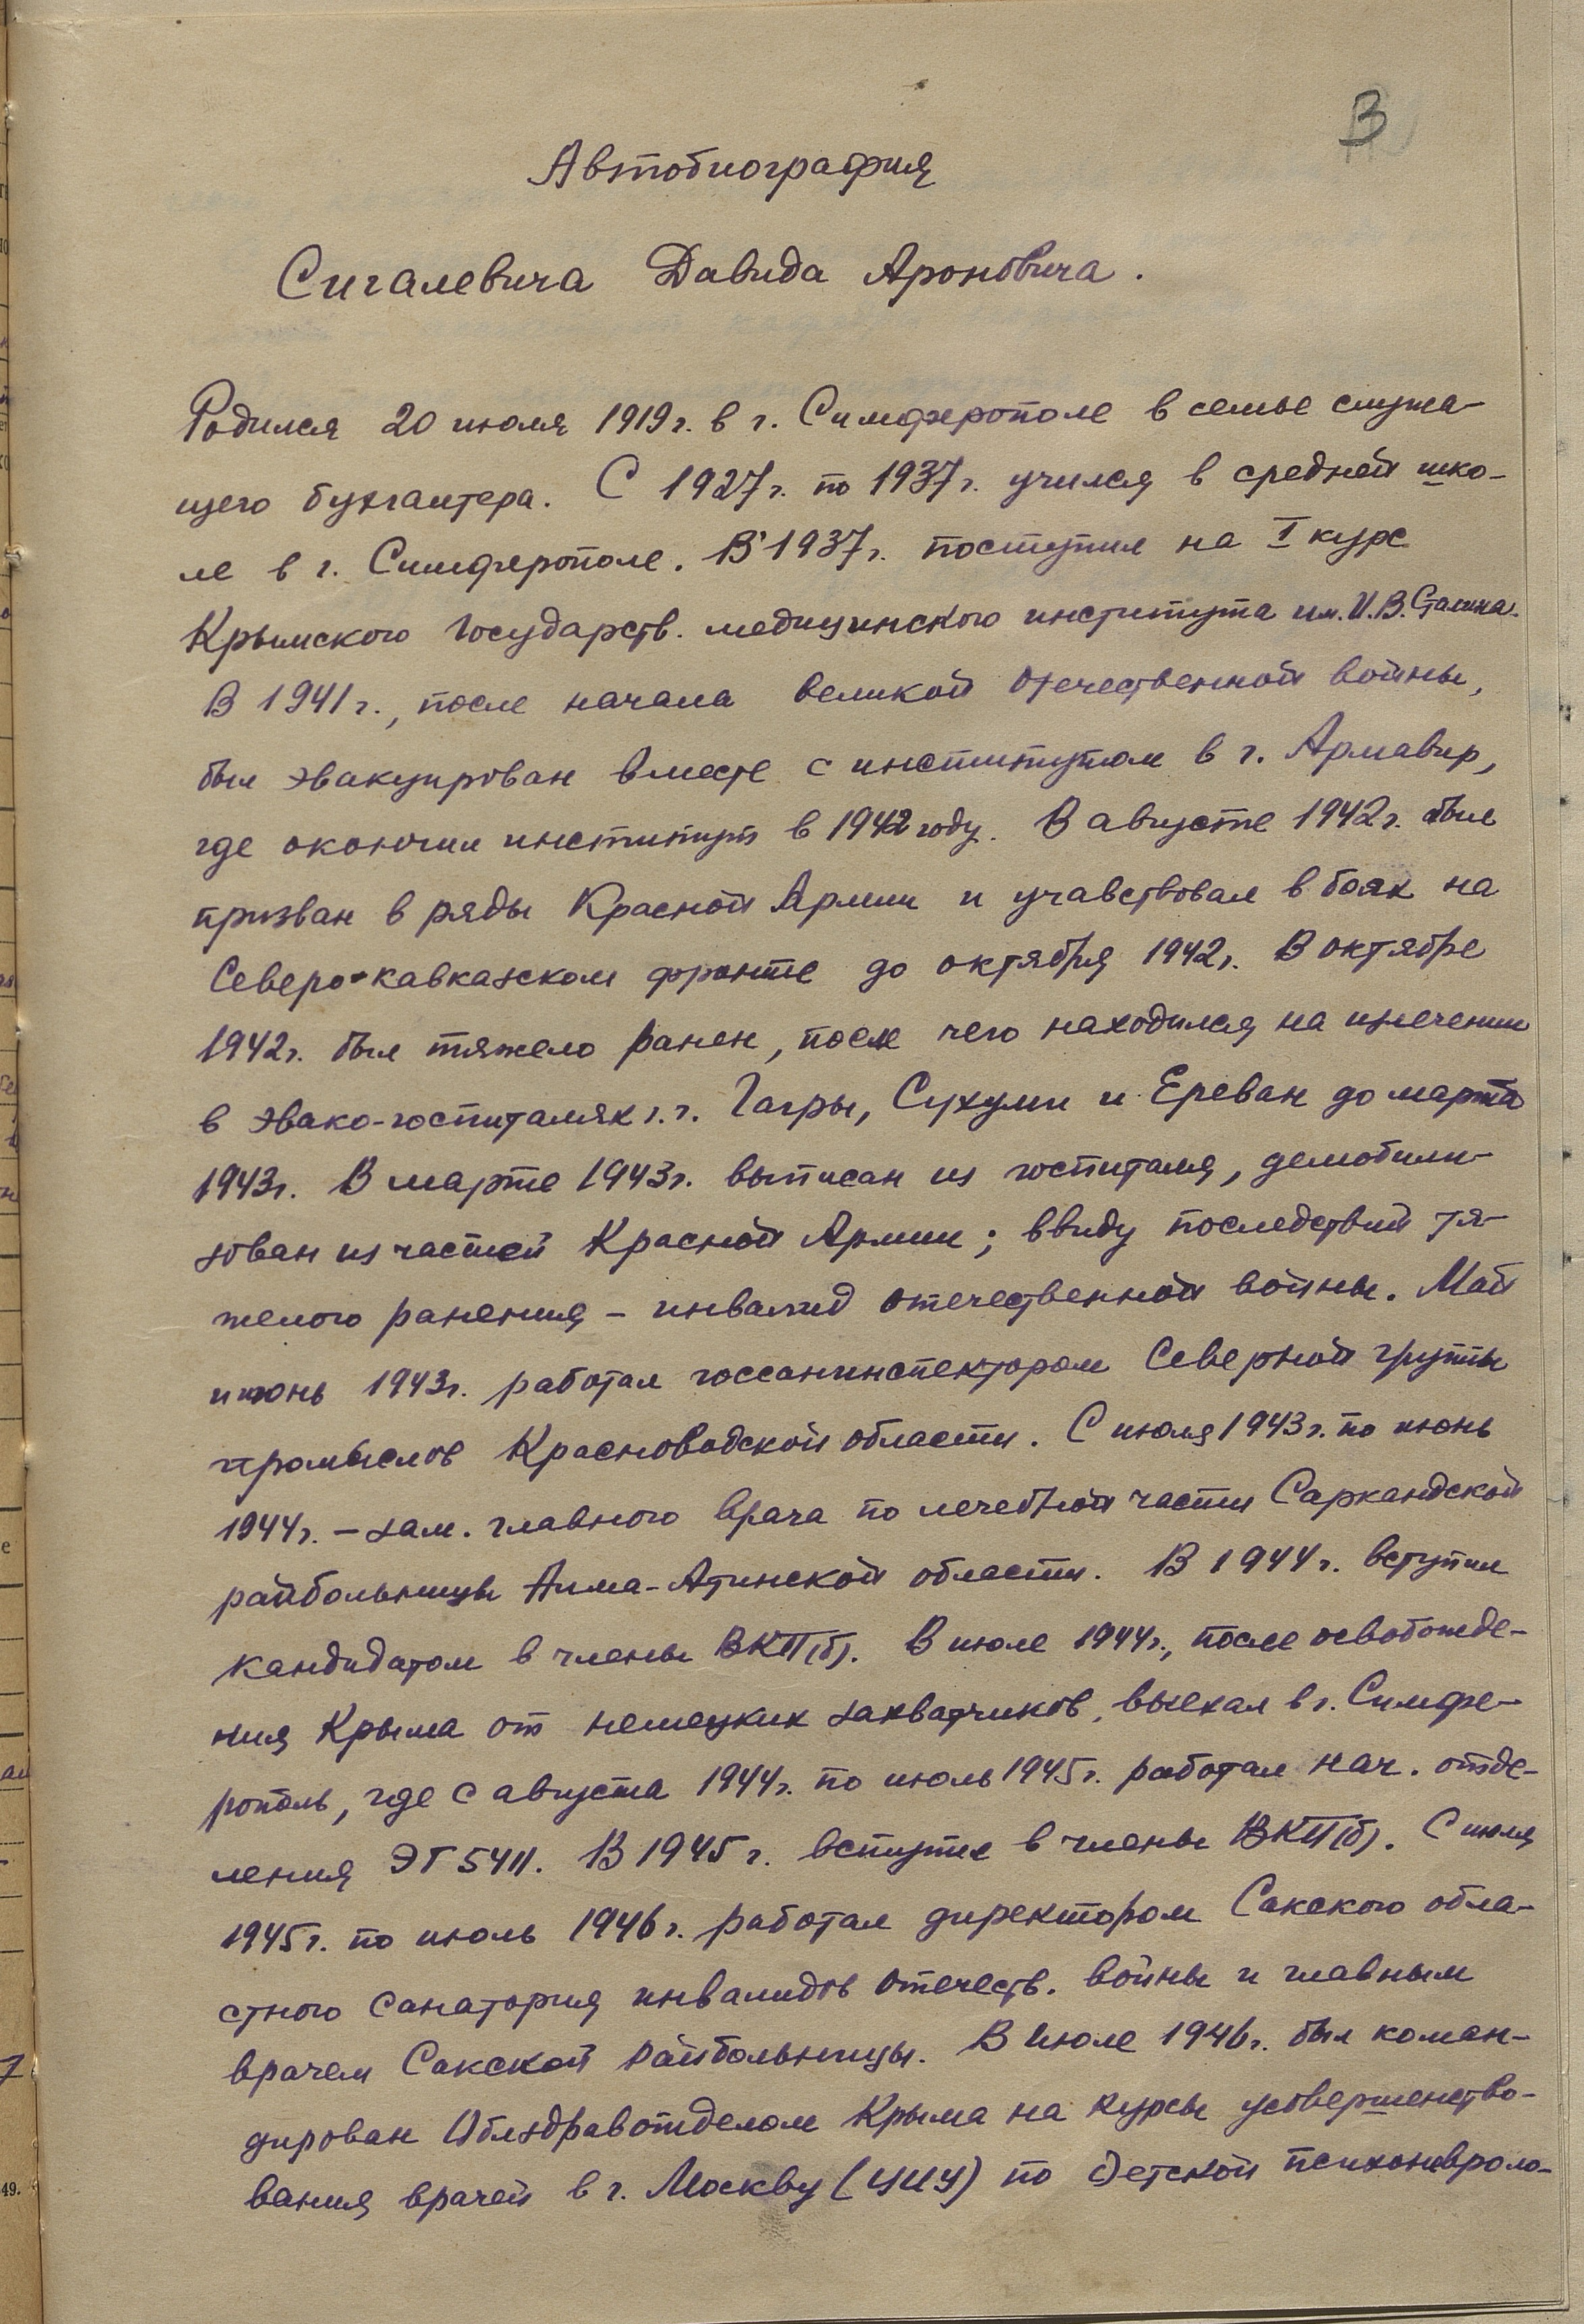 3
Автобиография
Сигалевича Давида Ароновича.
Родился 20 июля 1919г. в г. Симферополе в семье служа-
щего бухгалтера. С 1927г. по 1937г. учился в средней шко-
ле в г. Симферополе. В 1937г. поступил на I курс
Крымского Государств. медицинского института им. И.В. Сталина.
В 1941г., после начала великой Отечественной войны,
был эвакуирован вместе с институтом в г. Армавир,
где окончил институт в 1942 году. В августе 1942г. был
призван в ряды Красной Армии и учавствовал в боях на
Северо-кавказском фронте до октября 1942г. В октябре
1942г. был тяжело ранен, после чего находился на излечении
в эвако-госпиталях г.г. Гагры, Сухуми и Ереван до марта
1943г. В марте 1943г. выписан из госпиталя, демобили-
зован из частей Красной Армии; ввиду последствий тя-
желого ранения – инвалид отечественной войны. Май
июнь 1943г. работал госсанинспектором Северной группы
промыслов Красноводской области. С июля 1943г. по июнь
1944г. – зам. главного врача по лечебной части Саркандской
райбольницы Алма-Атинской области. В 1944г. вступил
кандидатом в члены ВКП(б). В июле 1944г., после освобожде-
ния Крыма от немецких захватчиков, выехал в г. Симфе-
рополь, где с августа 1944г. по июль 1945г. работал нач. отде-
ления ЭГ 5411. В 1945г. вступил в члены ВКП(б). С июля
1945г. по июль 1946г. работал директором Сакского обла-
стного санатория инвалидов Отечеств. войны и главным
врачем Сакской райбольницы. В июле 1946г. был коман-
дирован Облздравотделом Крыма на курсы усовершенство-
вания врачей в г. Москву (ЦИУ) по детской психоневроло-